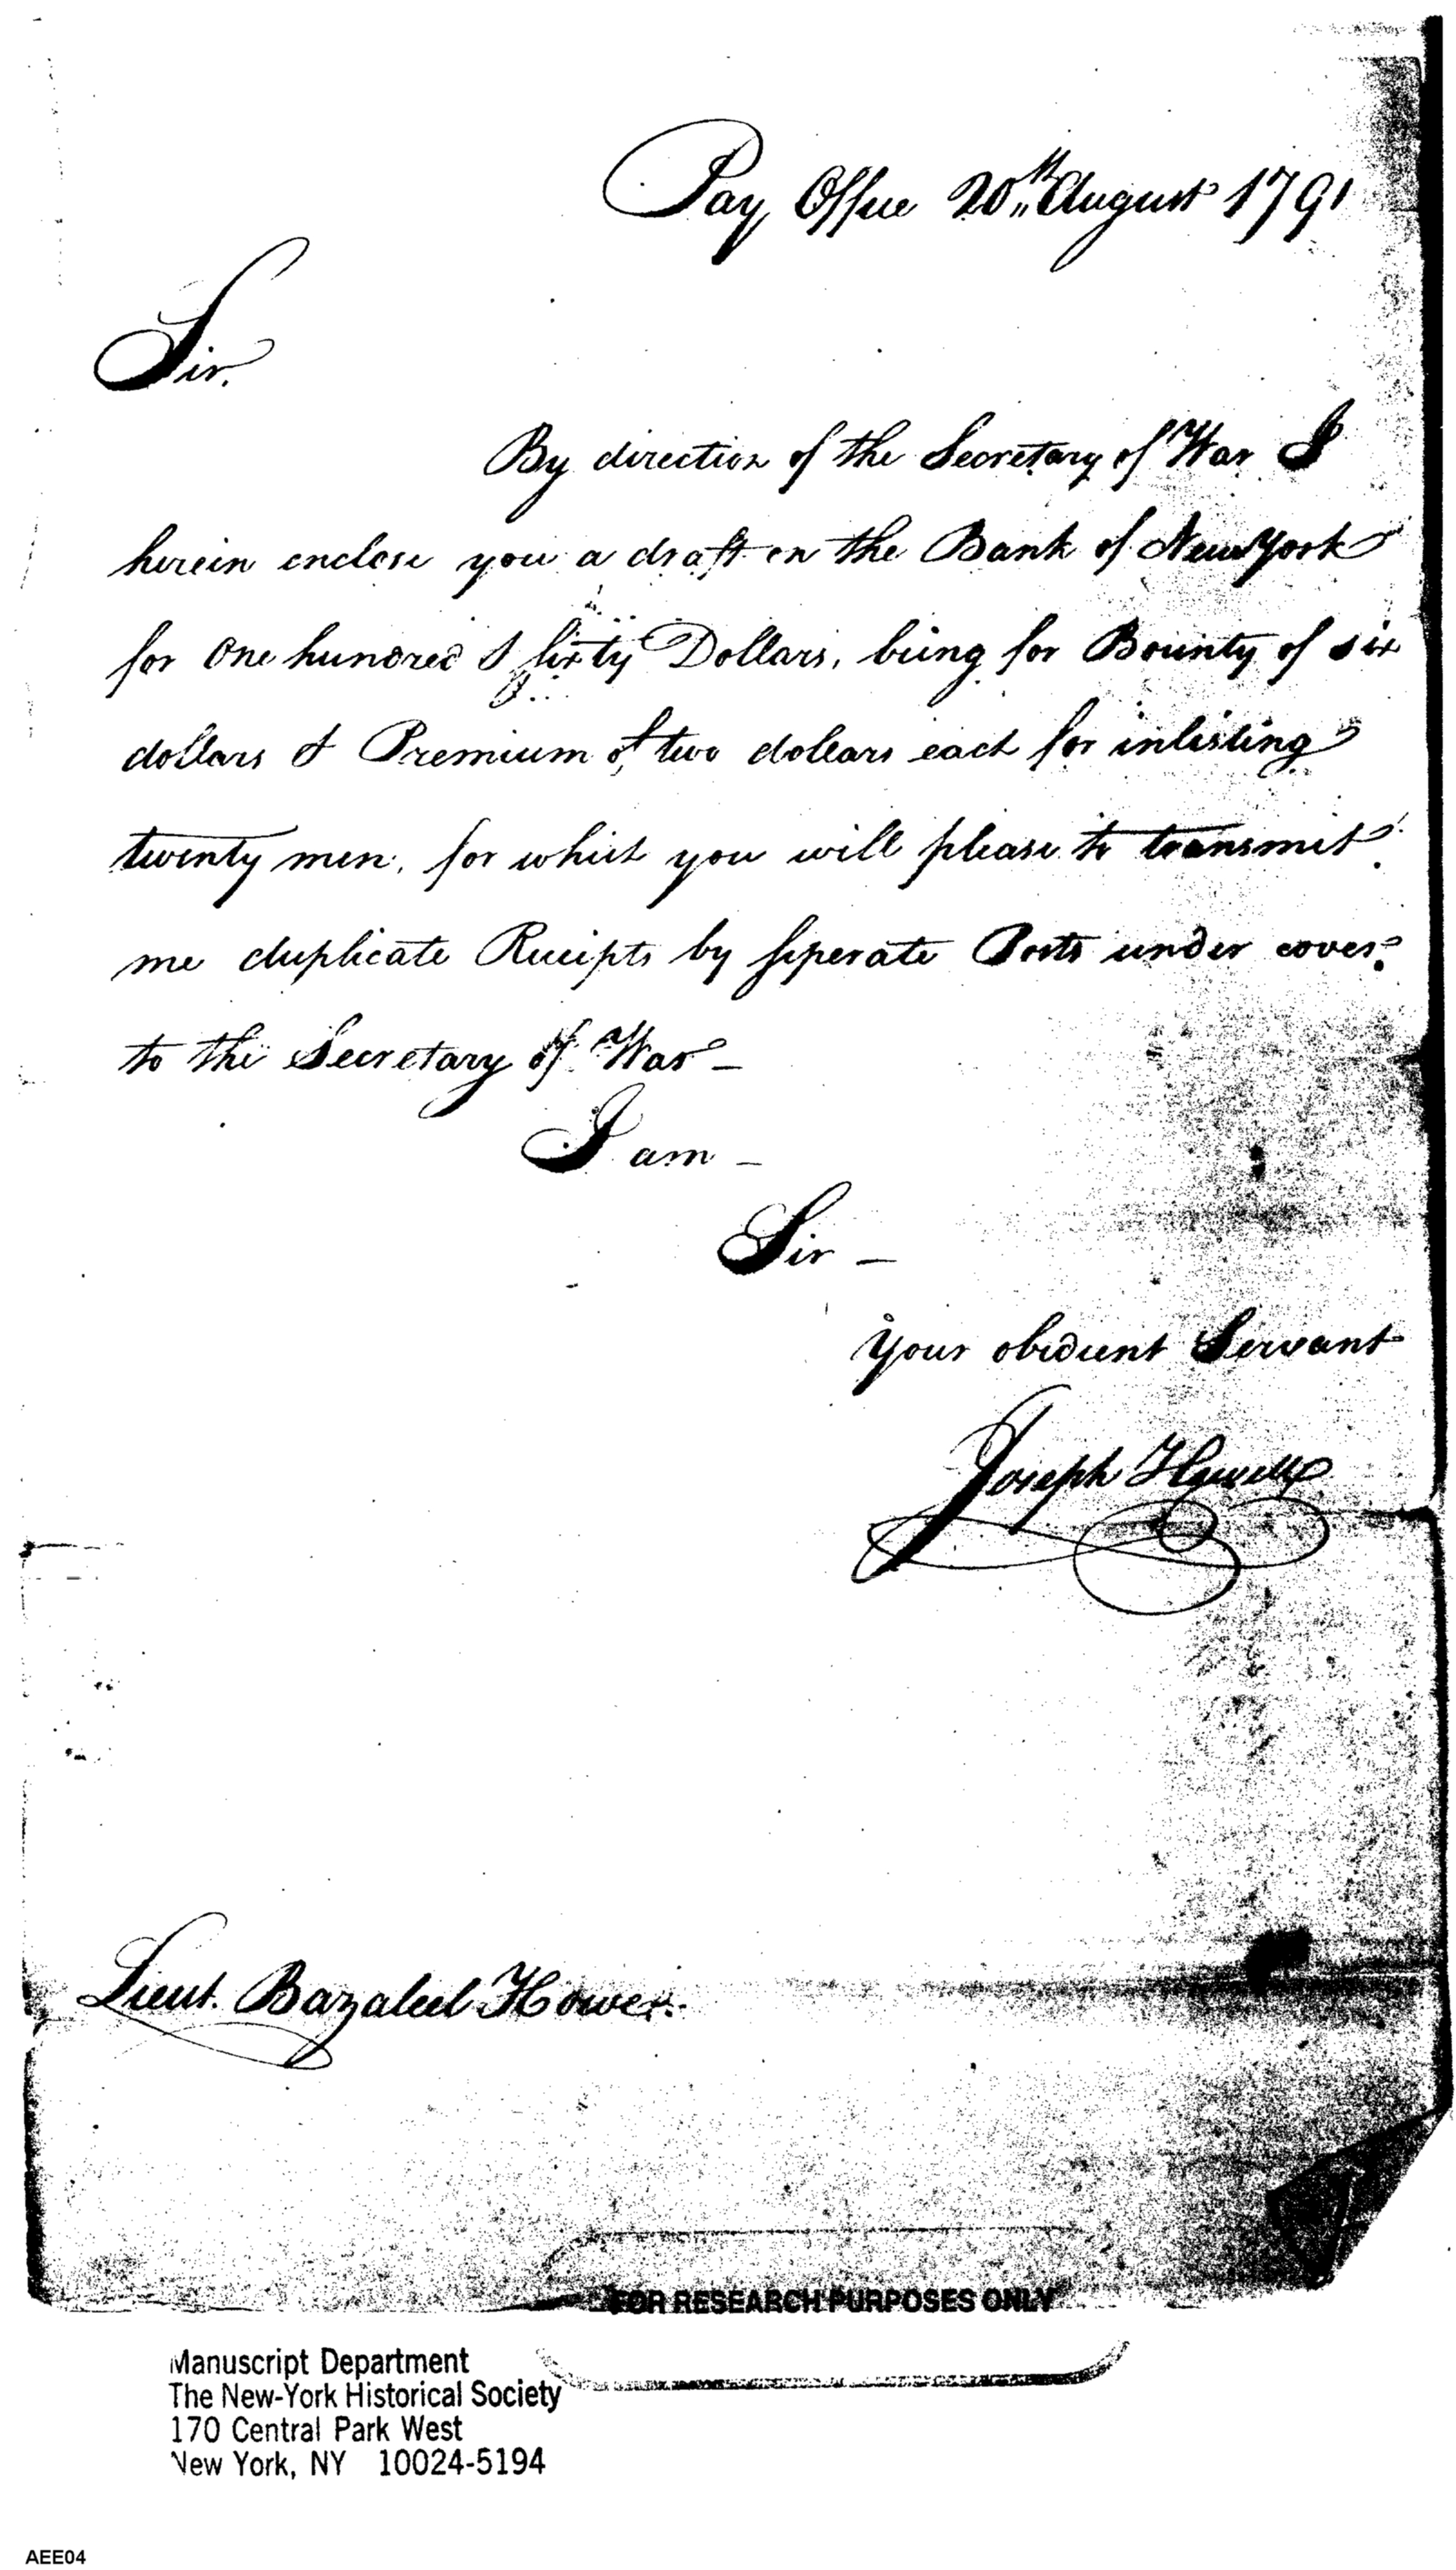 Pay Office 20th August 1791
Sir.
By direction of the Secretary of War I
herein enclose you a draft on the Bank of New York
for One hundred & sixty Dollars, being for Bounty of six
dollars & Premium of two dollars each for inlisting
twenty men, for which you will please to transmit
me duplicate Receipts by seperate Posts under cover
to the Secretary of War –
I am –
Sir –
Your obedient Servant
Joseph Howell
Lieut. Bazaleel Howe.
FOR RESEARCH PURPOSES ONLY
Manuscript Department
The New-York Historical Society
170 Central Park West
New York, NY 10024-5194
AEE04